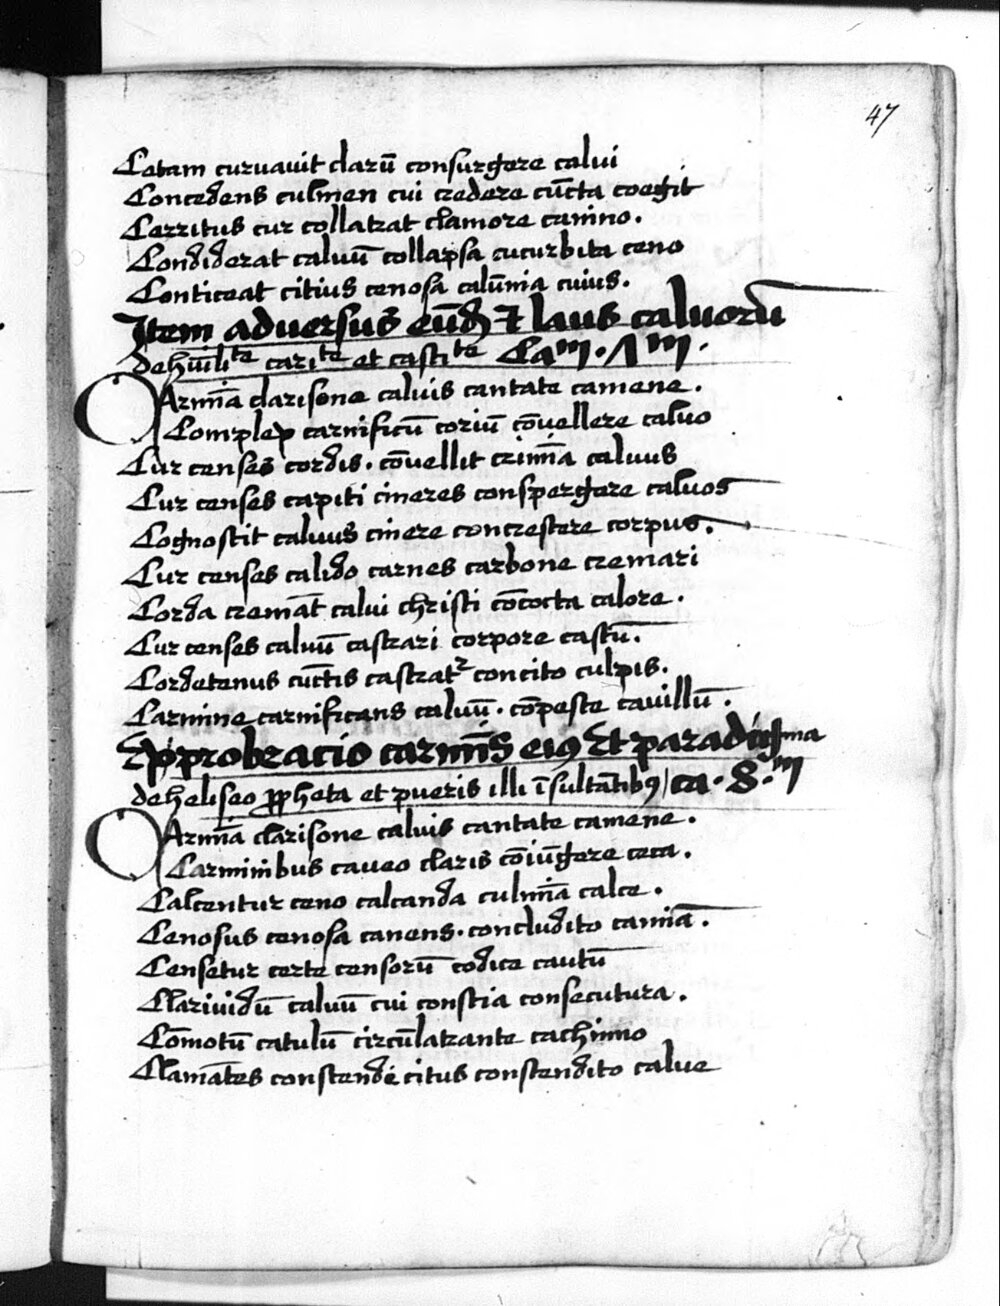 47
Cetam curuavit clarū consurgere calui
Concedens culmen cui credere cūcta coegit
Cerritus cur collatrat clamore canino.
Condiderat caluū collapsa cucurbita ceno
Conticeat citius cenosa calūnia cuius.
Item adversus eūd 7 laus caluorū
de hūilite carite et castite Cam.
Armīa clarisone caluis cantate camene.
Complex carnificū coriū cōuellere caluo
Cur censes cordis. cōuellit crimīa caluus
Cur censes capiti cineres conspergere caluos
Cognoscit caluus cinere concrescere corpus.
Cur censes calido carnes carbone cremari
Corda cremāt calui christi cōcocta calore.
Cur censes caluū castrari corpore castū.
Cordetenus cūctis castrat concito culpis.
Carmine carnificans caluū. cōpesce cauillū.
Exprobracio carmīs ei9 Et paradigma
de heliseo ppheta et pueris illi īsultātib9 ca. 8.m
Armīa clarisone caluis cantate camene.
Carminibus caueo claris cōiūgere ceca.
Calcentur ceno calcanda culmīa calce.
Cenosus cenosa canens. concludito carmīa.
Censetur certe censorū codice cautū
Clariuidū caluū cui conscia consecutura.
Cōmotū catulū circūlatrante cachinno
Clamātes conscende citus conscendito calue